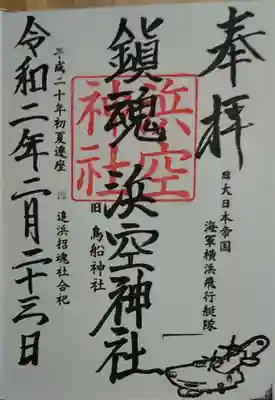 奉拝
旧大日本帝国
海軍横浜飛行艇隊
鎮魂 浜空神社
浜空
神社
旧 鳥船神社
平成二十年初夏遷座
追浜招魂社合祀
令和二年二月二十三日